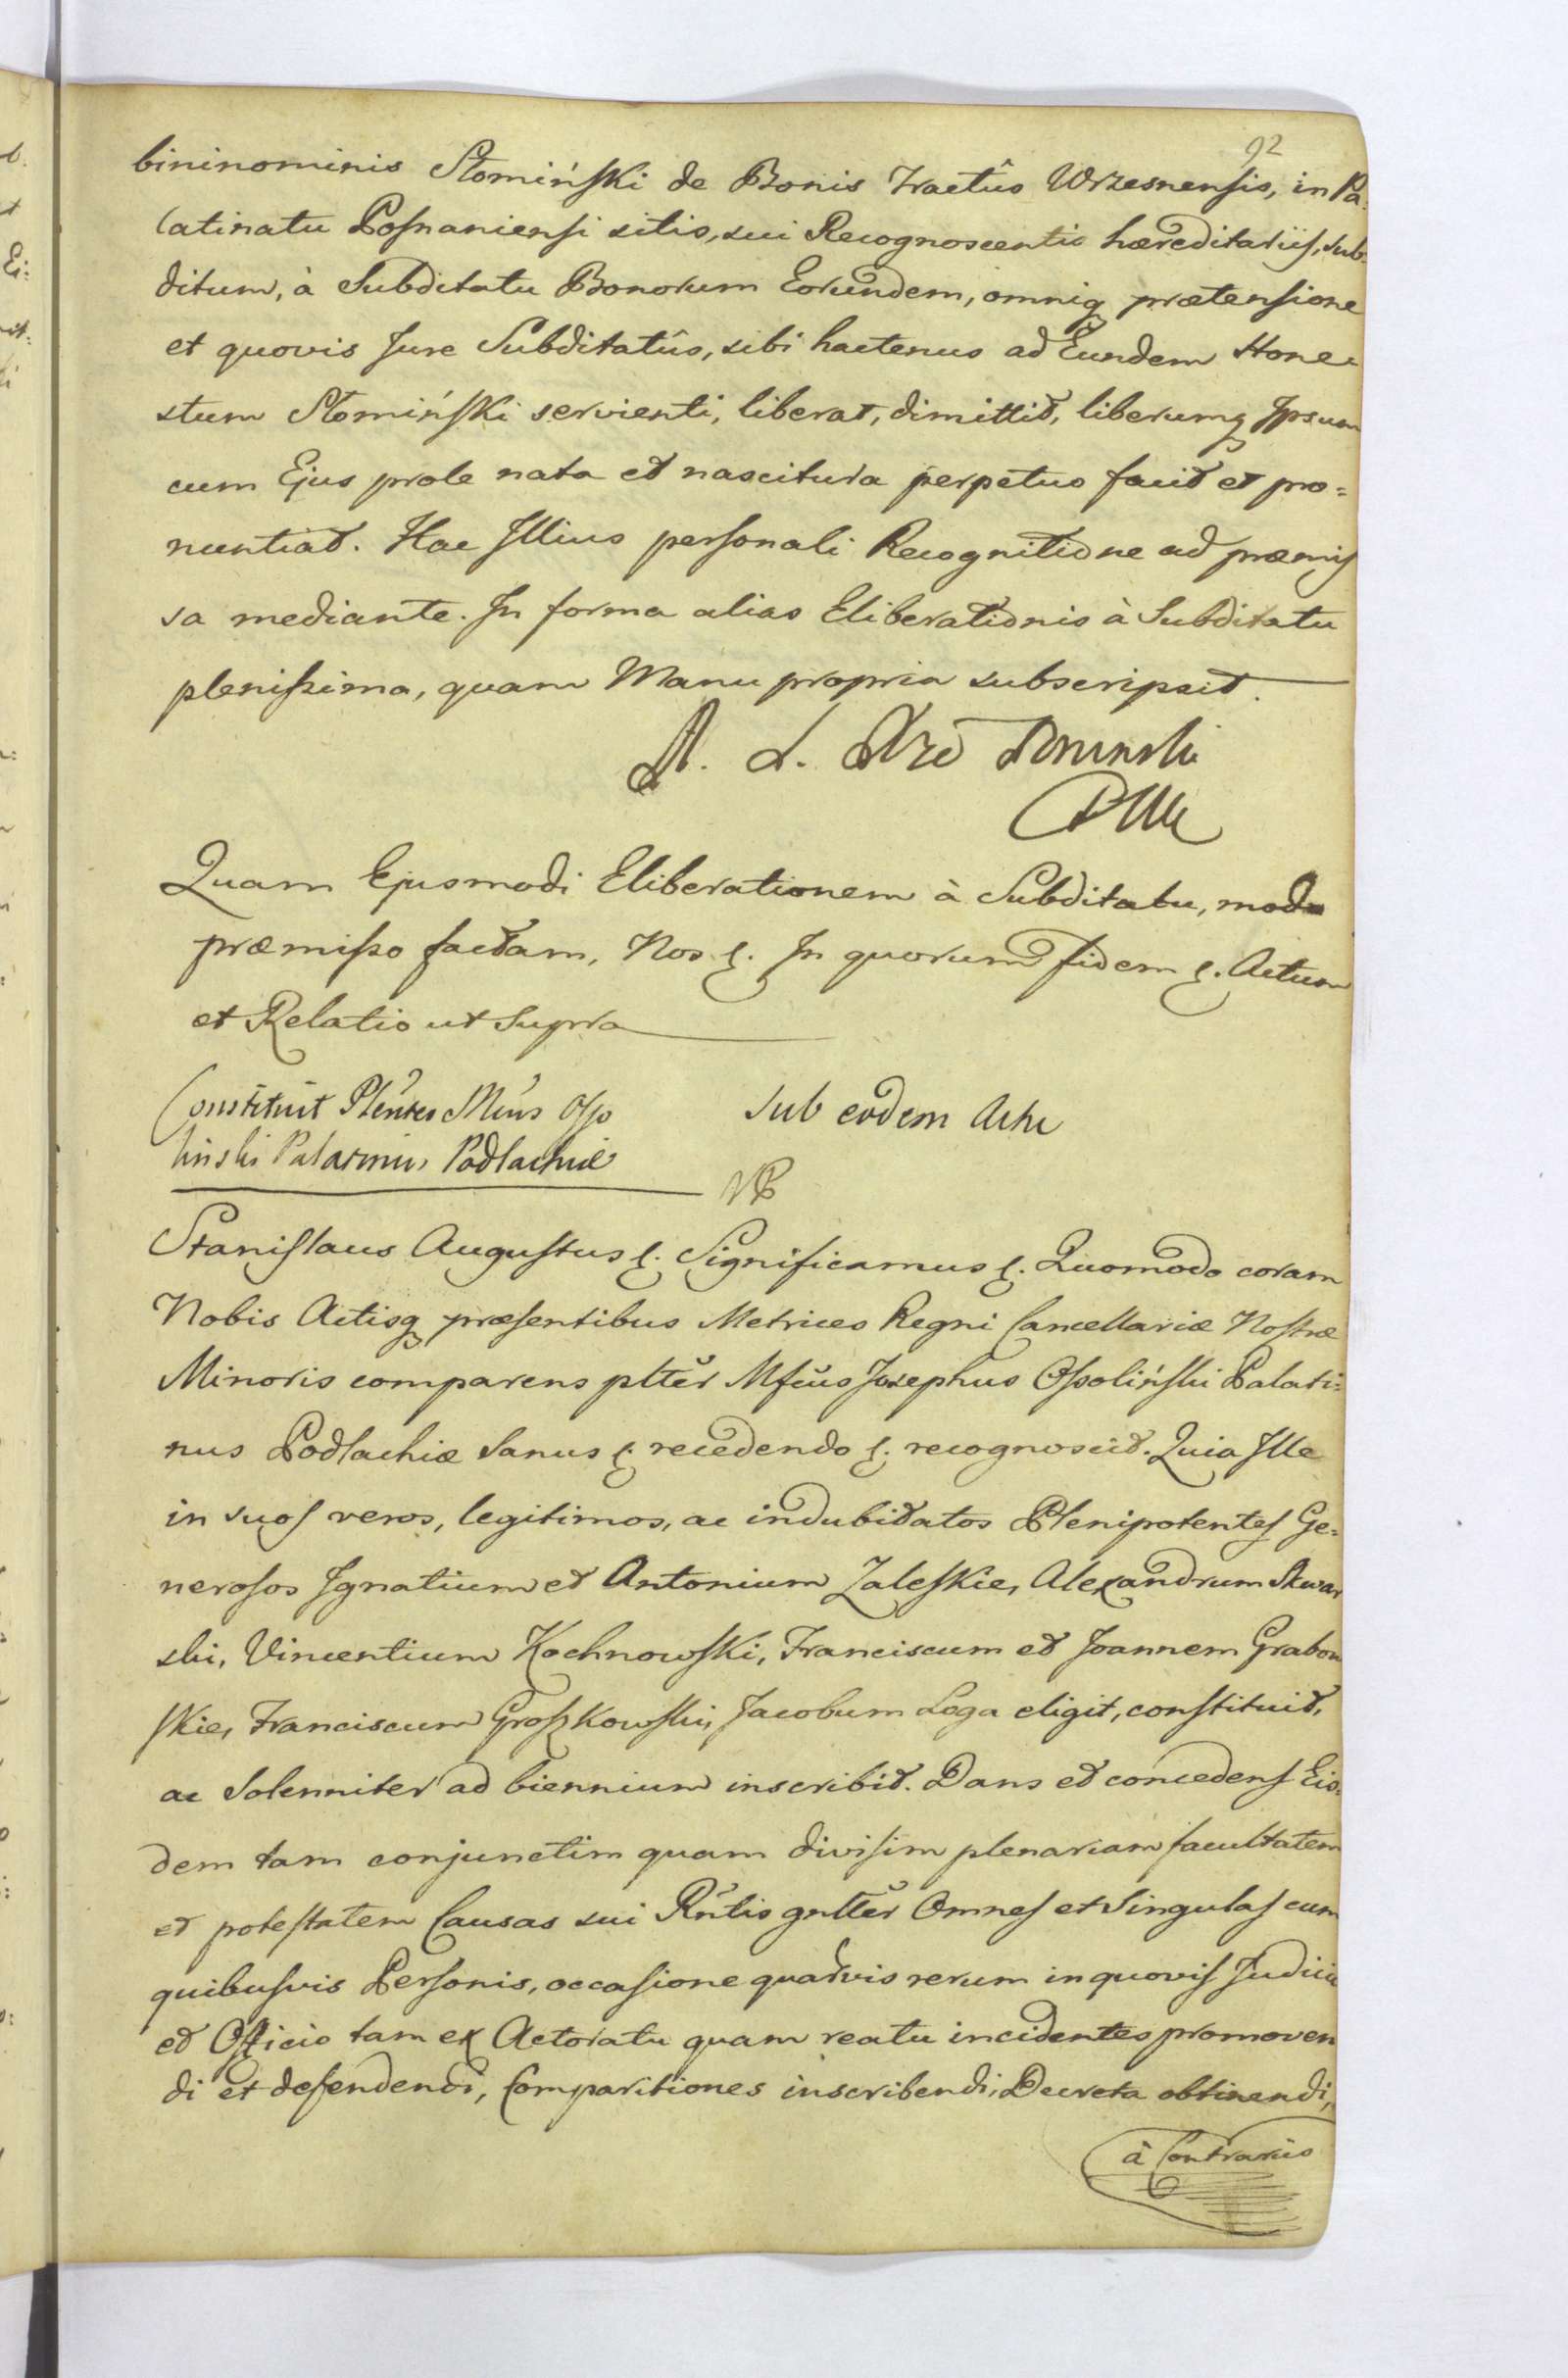 92
bininominis Słomiński de Bonis Tractûs Wrzesnensis, in Pa-
latinatu Posnaniensi sitis, sui Recognoscentis hæreditariis, sub-
ditum, à Subditatu Bonorum Eorundem, omniq prætensione
et quovis Jure Subditatûs, sibi hactenus ad Eundem Hone-
stum Słomiński servienti, liberat, dimittit, liberumq Ipsum
cum Ejus prole nata et nascitura perpetuo facit et pro=
nuntiat. Hac Illius personali Recognitione ad præmis
sa mediante. In forma alias Eliberationis à Subditatu
plenissima, quam Manu propria subscripsit.
A. L. Xże
Quam Ejusmodi Eliberationem à Subditatu, modo
præmisso factam, Nos &. In quorum fidem &. Actum
et Relatio ut Supra
Constituit Plentes Mcus Osso
liński Palatinus Podlachiæ
Sub eodem Actu
Stanislaus Augustus &. Significamus &. Quomodo coram
Nobis Actisq præsentibus Metrices Regni Cancellariæ Nostræ
Minoris comparens plter Mfcus Josephus Ossoliński Palati=
nus Podlachiæ Sanus &. recedendo &. recognoscit. Quia Ille
in suos veros, legitimos, ac indubitatos Plenipotentes Ge=
nerosos Ignatium et Antonium Zaleskie, Alexandrum Skwar
ski, Vincentium Kochnowski, Franciscum et Joannem Grabow
skie, Franciscum Groszkowski, Jacobum Loga eligit, constituit,
ac Solenniter ad biennium inscribit. Dans et concedens Eis=
dem tam conjunctim quam divisim plenariam facultatem
et potestatem Causas sui Rntis gnlter Omnes et Singulas cum
quibusvis Personis, occasione quarvis rerum in quovis Judicio
et Officio tam ex Actoratu quam reatu incidentes promoven
di et defendendi, Comparitiones inscribendi, Decreta obtinendi,
à Contrariis